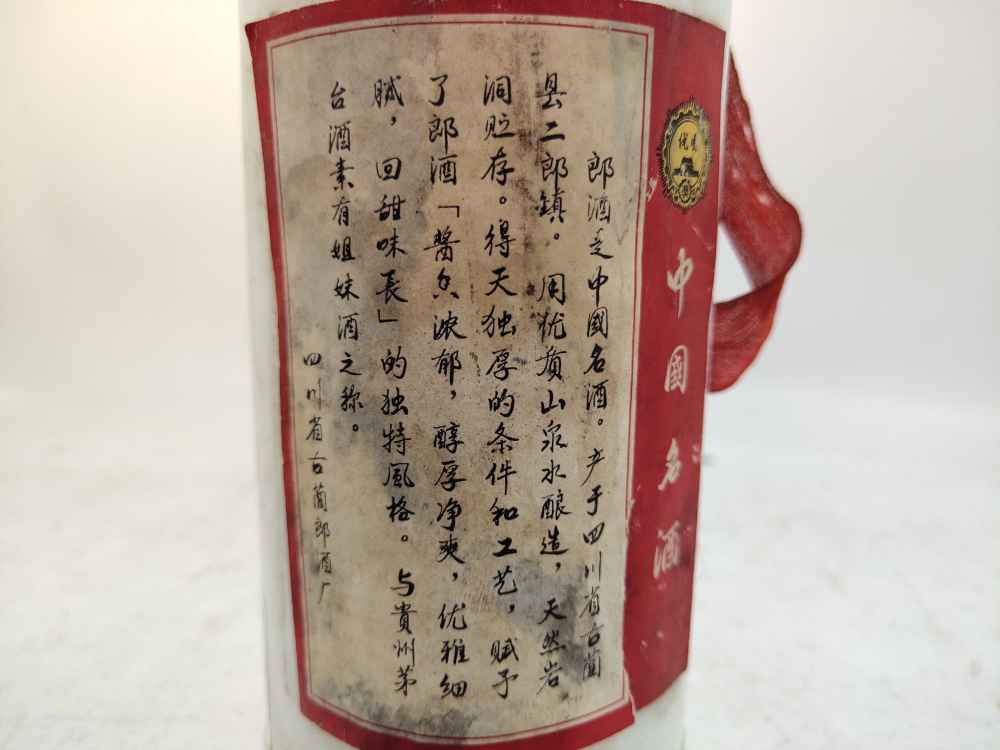 郎酒是中國名酒。产于四川省古藺
县二郎鎮。用优质山泉水酿造，天然岩
洞贮存。得天独厚的条件和工艺，赋予
了郎酒「醬香浓郁，醇厚净爽，优雅细
腻，回甜味長」的独特風格。与貴州茅
台酒素有姐妹酒之称。
四川省古藺郎酒厂
优质
中國名酒